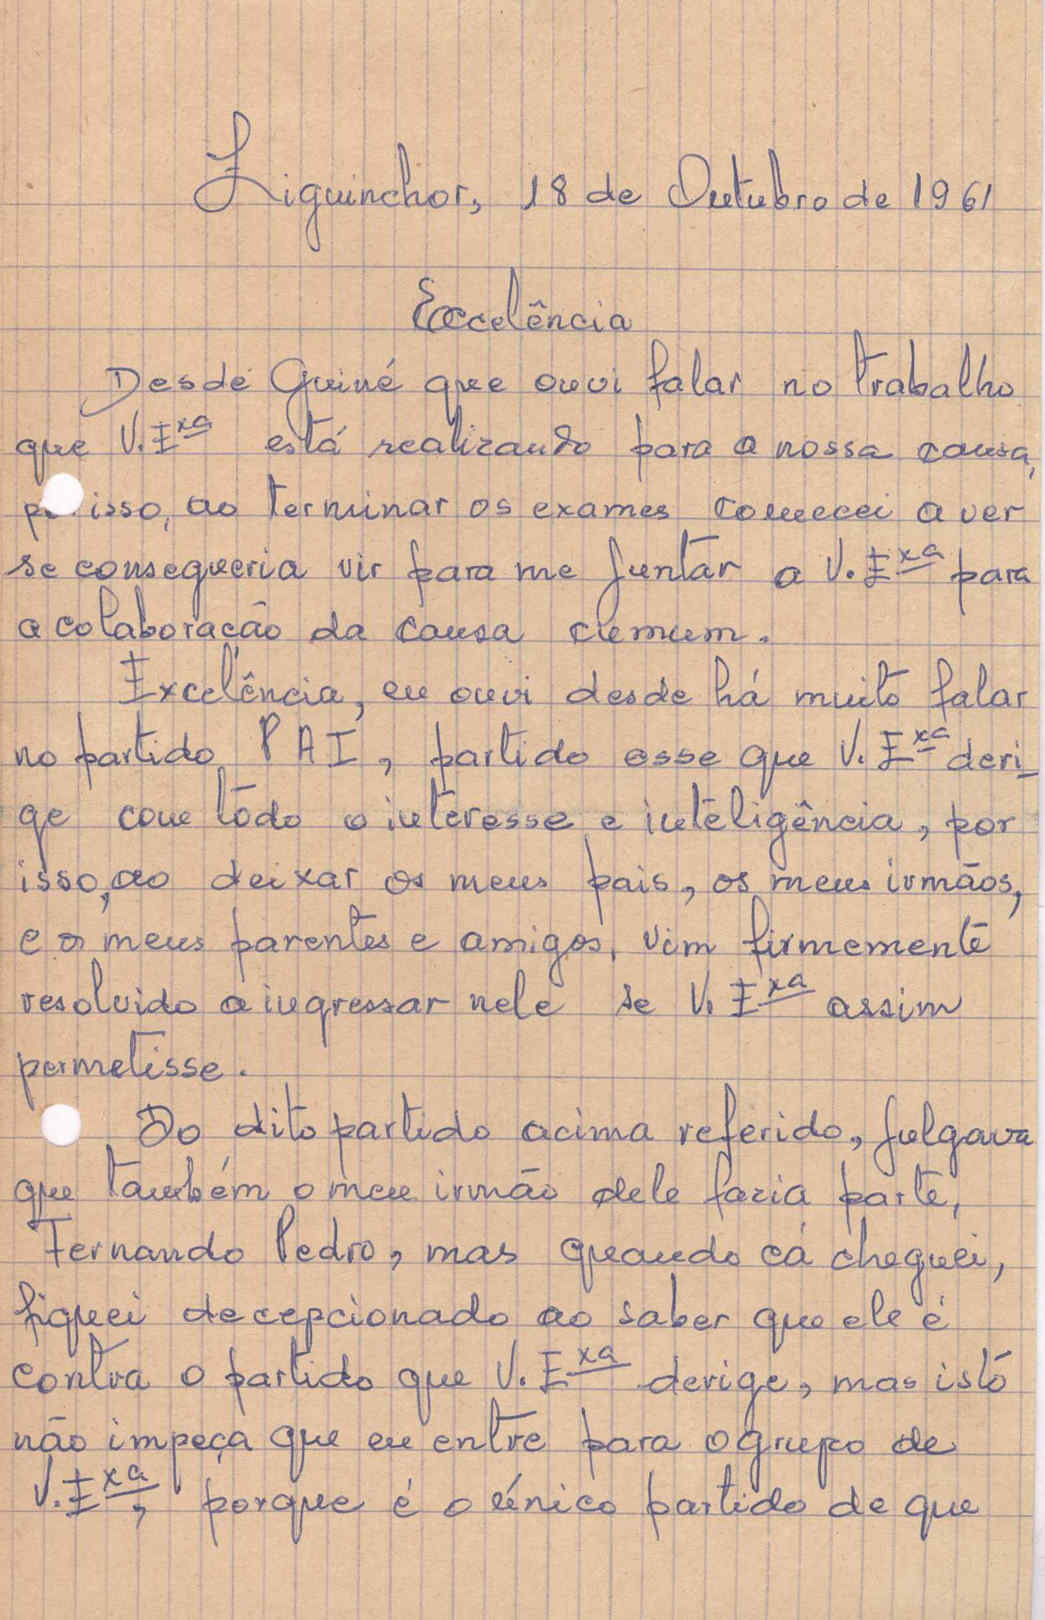 Ziguinchor, 18 de Outubro de 1961
Excelência
Desde Guiné que ouvi falar no trabalho
que V. Exa está realizando para a nossa causa,
isso, ao terminar os exames comecei a ver
se consegueria vir para me juntar a V. Exa para
a colaboração da causa cumum.
Excelência, eu ouvi desde há muito falar
no partido PAI, partido esse que V. Exa deri-
ge com tôdo o interesse e inteligência, por
isso, ao deixar os meus pais, os meus irmãos,
e os meus parentes e amigos, vim firmemente
resolvido a ingressar nele se V. Exa assim
permetisse.
Do dito partido acima referido, julgava
que também o meu irmão dele fazia parte,
Fernando Pedro, mas quando cá cheguei,
fiquei decepcionado ao saber que ele é
contra o partido que V. Exa derige, mas istó
não impeça que eu entre para o grupo de
V. Exa, porque é o único partido de que